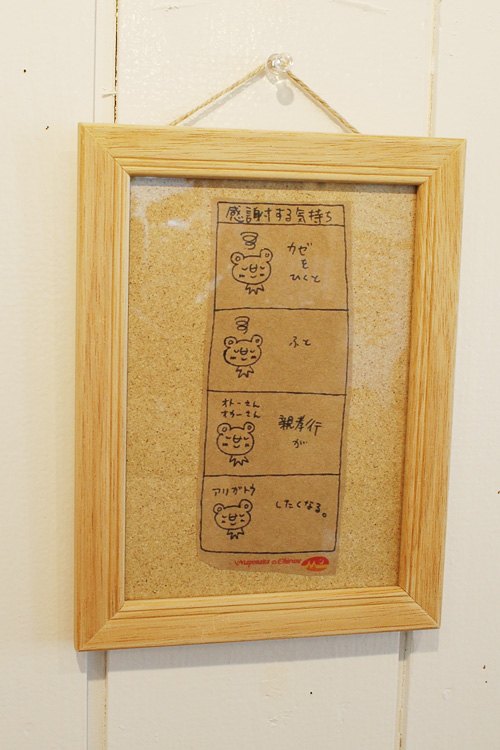 感謝する気持ち
カゼ
を
ひくと
ふと
オトーさん
オカーさん
親孝行
が
アリガトウ
したくなる。